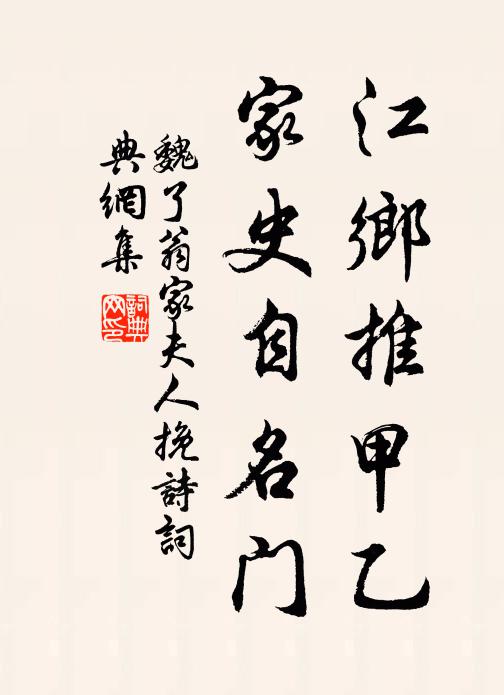 江鄉推甲乙
家史自名門
魏了翁家夫人挽詩詞
典網集
詞典
网印